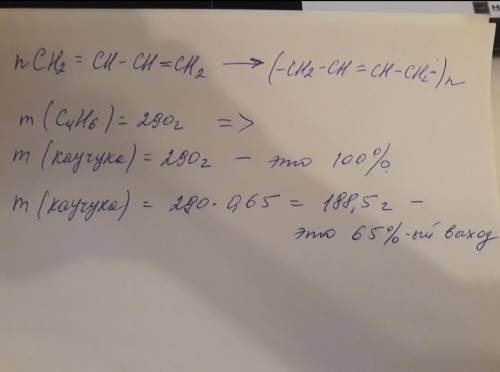 nCH₂ = CH-CH=CH₂ ⟶ (-CH₂-CH=CH-CH₂-)n
m(C₄H₆) = 290г =>
m(каучука) = 290г - это 100%
m(каучука) = 290·0,65 = 188,5г -
это 65%-ый выход